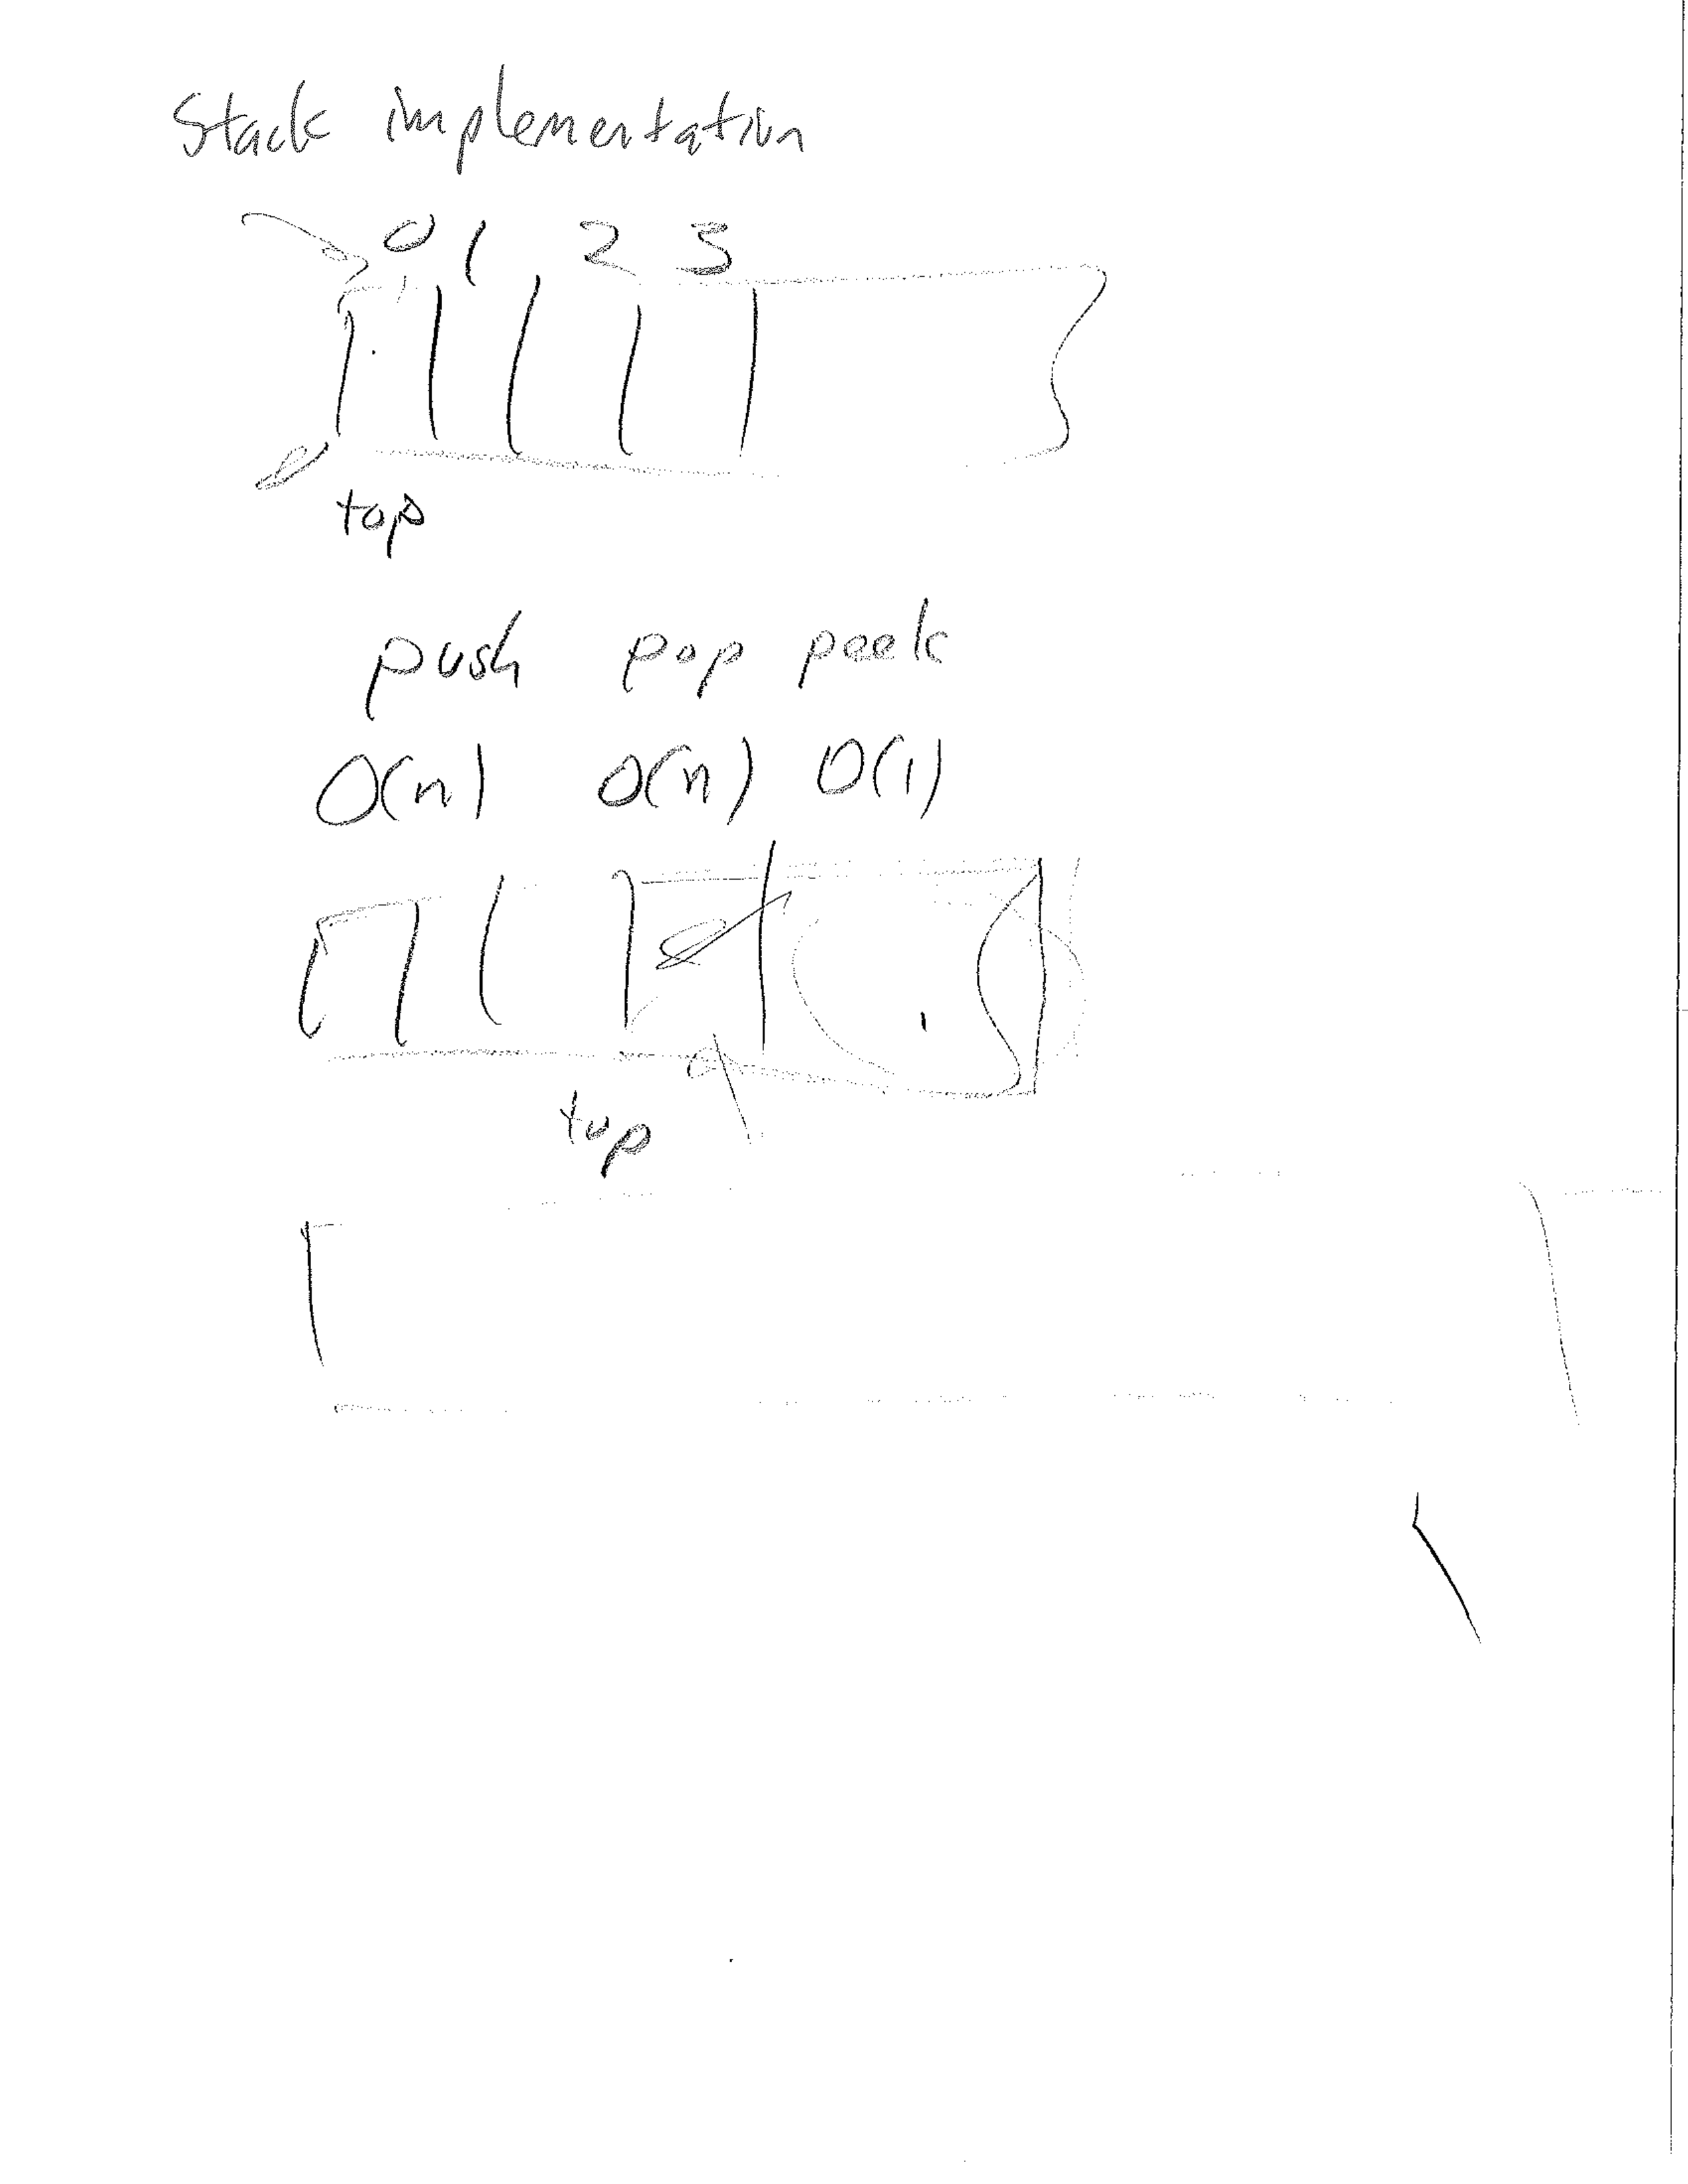 Stack implementation
0 1 2 3
top
push pop peek
O(n) O(n) O(1)
top